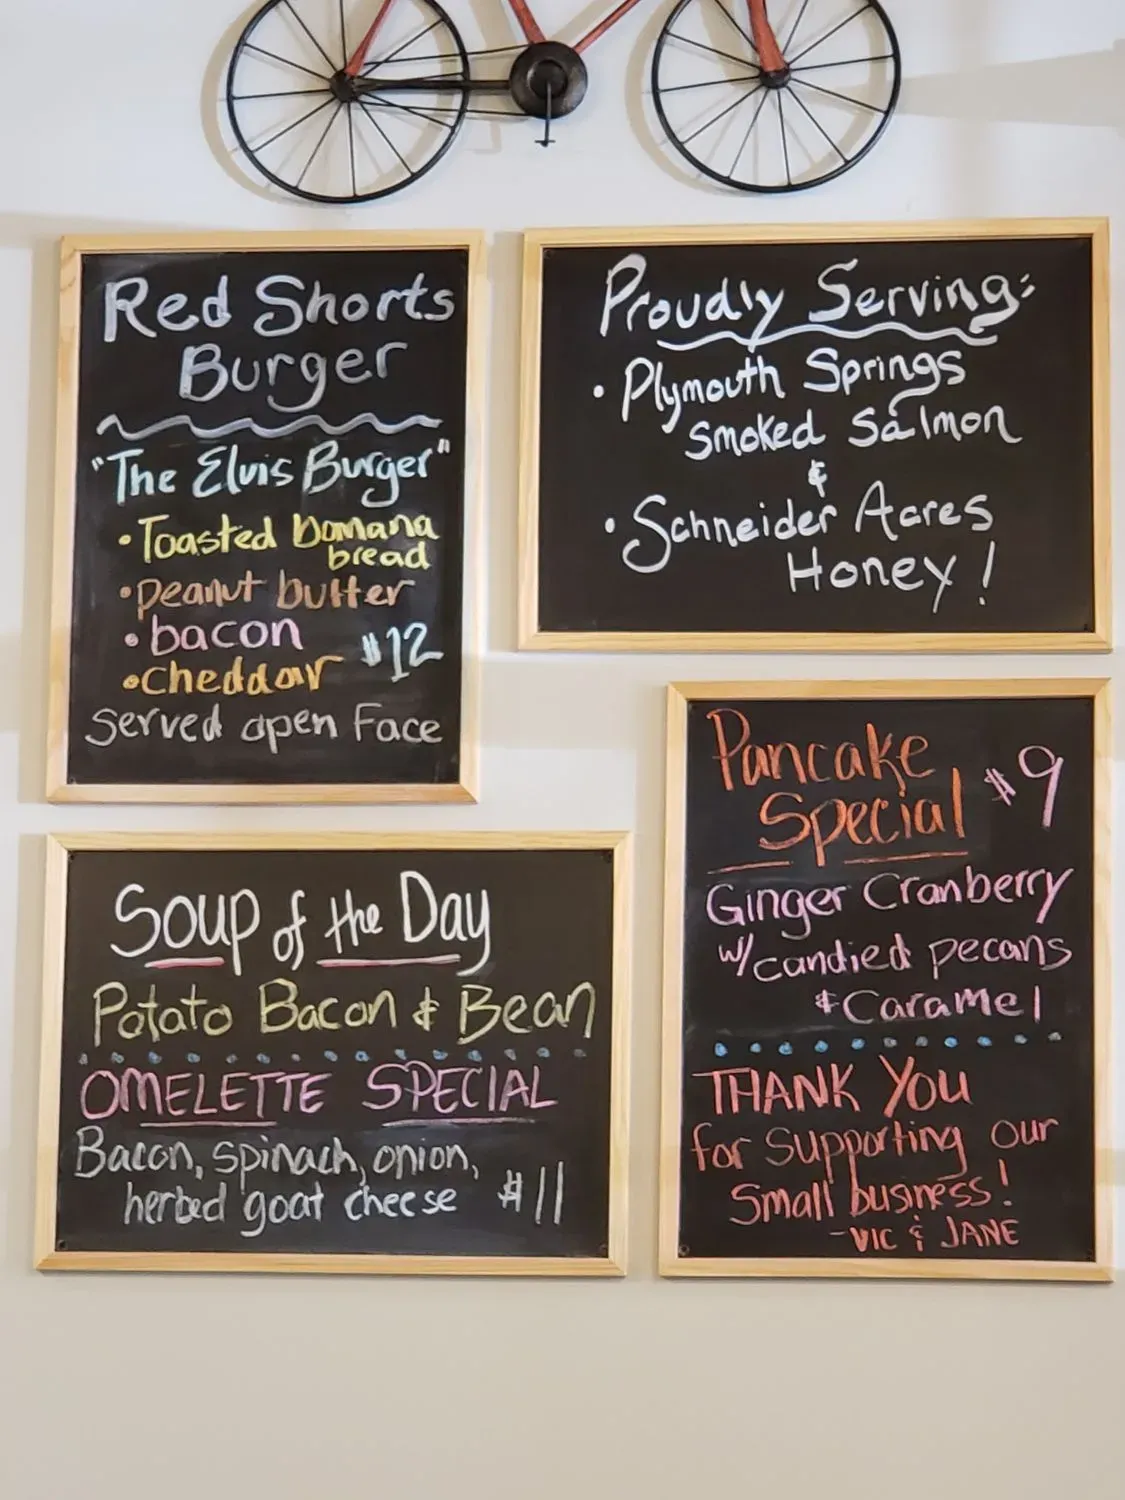 Red Shorts
Burger
"The Elvis Burger"
• Toasted banana
bread
• peanut butter
• bacon
$12
• cheddar
Served open Face
Proudly Serving:
• Plymouth Springs
Smoked Salmon
&
• Schneider Acres
Honey!
Soup of the Day
Potato Bacon & Bean
OMELETTE SPECIAL
Bacon, spinach, onion,
herbed goat cheese $11
Pancake
Special $9
Ginger Cranberry
w/ candied pecans
& Caramel
THANK YOU
for supporting our
Small business!
- VIC & JANE